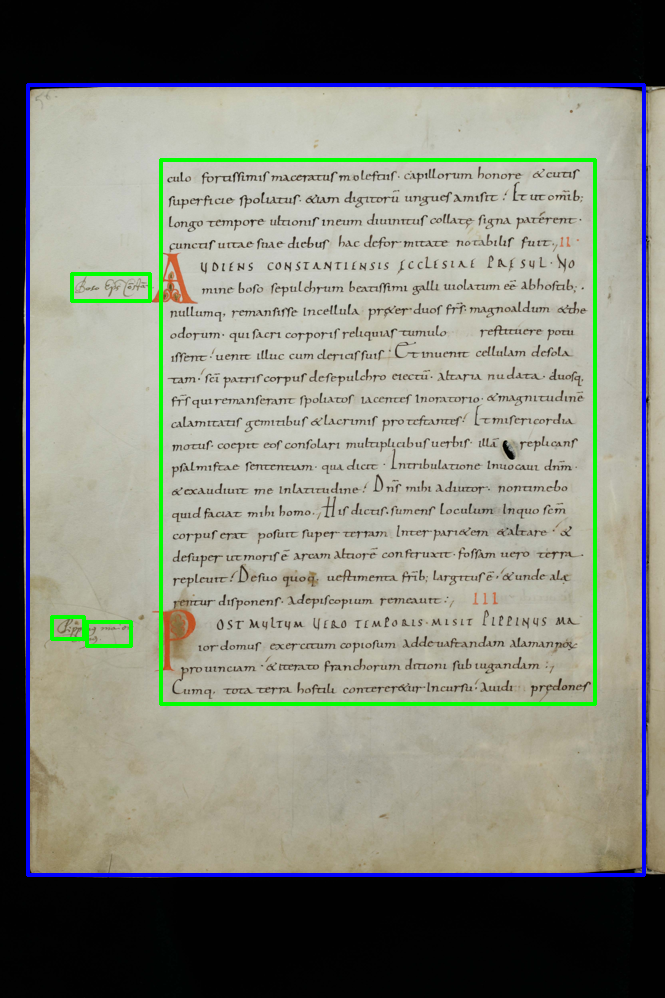 culo fortissimis maceratus molestiis. capillorum honore & cutis
superficie spoliatus. &iam digitorū ungues amisit; Et ut omīb;
longo tempore ultionis in eum divinitus collatę signa paterent.
cunctis uitae suae diebus hac deformitate notabilis fuit. II.
AUDIENS CONSTANTIENSIS ECCLESIAE PRESUL. NO
mine boso sepulchrum beatissimi galli uiolatum eē abhostib;
nullumq, remansisse Incellula pr&er duos frs̄ magnoaldum &the
odorum. qui sacri corporis reliquias tumulo restituere potu
issent. uenit illuc cum clericis suis. Et inuenit cellulam desola
tam. sc̄i patris corpus desepulchro eiectū. altaria nudata. duosq,
frs̄ qui remanserant spoliatos iacentes Inoratorio. &magnitudinē
calamitatis gemitibus &lacrimis protestantes. Et misericordia
motus. coepit eos consolari multiplicibus uerbis. illā replicans
psalmistae sententiam. qua dicit. Intribulatione Inuocaui dn̄m.
&exaudiuit me Inlatitudine. Dn̄s mihi adiutor. nontimebo
quid faciat mihi homo. His dictis. sumens loculum Inquo sc̄m
corpus erat posuit super terram Inter pari&em &altare. &
desuper ut moris ē arcam altiorē construxit. fossam uero terra
repleuit. Desuo quoq, uestimenta frīb; largitus ē. &unde alę
rentur disponens. Adepiscopium remeauit. III
POST MULTUM UERO TEMPORIS. MISIT PIPPINUS MA
ior domus exercitum copiosum Addeuastandam alamannoꝝ
prouinciam. &iterato franchorum ditioni subiugandam.
Cumq, tota terra hostili conterer&ur Incursu. Auidi prędones
Boso Ep̄s
Pippin